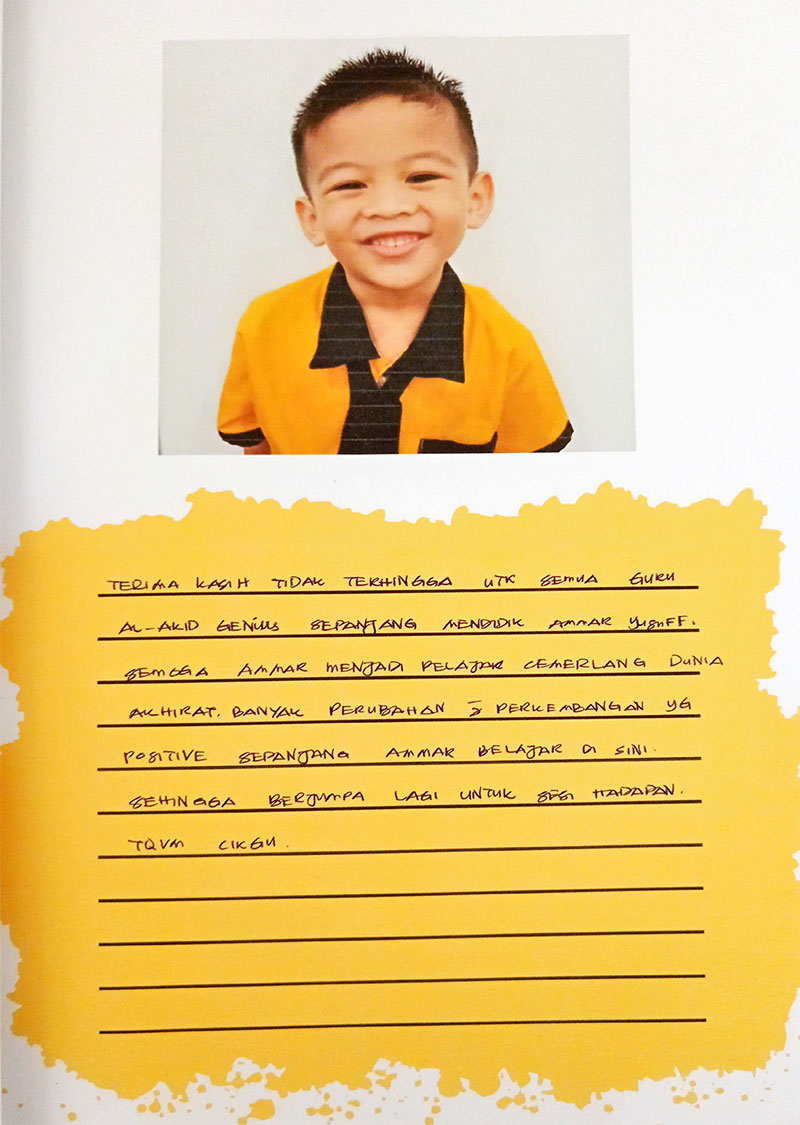 TERIMA KASIH TIDAK TERHINGGA UTK SEMUA GURU
AL-AKID GENIUS SEPANJANG MENDIDIK AMMAR YUSUFF.
SEMOGA AMMAR MENJADI PELAJAR CEMERLANG DUNIA
AKHIRAT. BANYAK PERUBAHAN PERKEMBANGAN YG
POSITIVE SEPANJANG AMMAR BELAJAR DI SINI.
SEHINGGA BERJUMPA LAGI UNTUK SESI HADAPAN.
TQVM CIKGU.